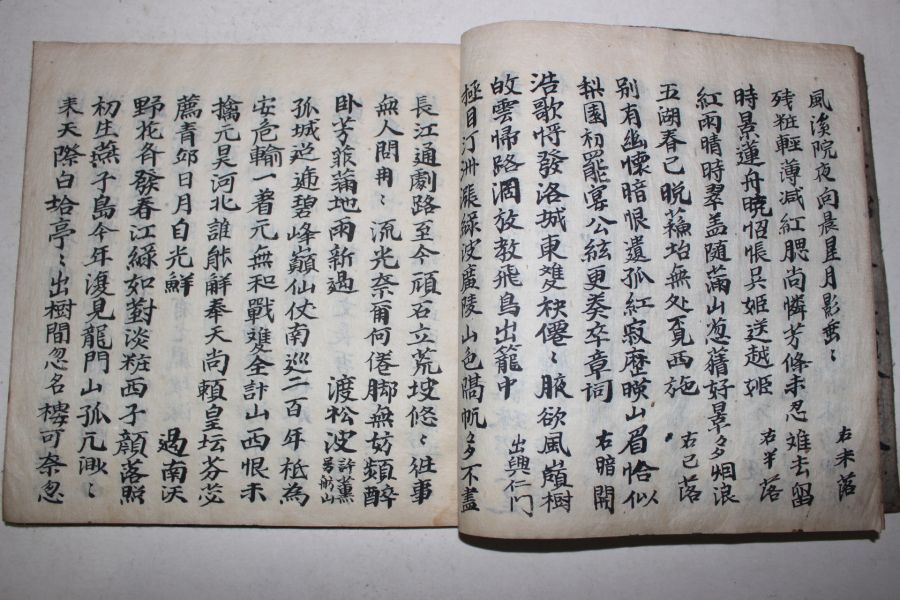 風溪院夜向晨星月影垂〻 右未落
残粧輕薄減紅腮尚憐芳條未忍難去留
時景蓮舟曉怊悵吳姬送越姬 右半落
紅雨晴時翠盖随滿山葱蒨好景多烟浪
五湖春已晚蘓坮無処覔西施 右已落
別有幽懷暗恨遺孤紅寂歷暎山眉恰似
梨園初罷宴公絃更奏卒章詞 右暗開
浩歌将發洛城東雙袂僊〻腋欲風嶺樹
啟雲帰路濶放教飛鳥出籠中 出興仁門
極目汀洲漲綠波廣陵山色隔帆多不盡
長江通劇路至今頑石立荒坡悠〻徃事
無人問冉〻流光奈爾何倦脚無妨頻醉
卧芳菲蒲地雨新過 渡松波 許薰号舫山
孤城迢遞碧峰巔仙仗南巡二百年柢為
安危輸一着元無和戰難全計山西恨未
擒元昊河北誰能解奉天尚頼皇坛芬苾
薦青邱日月白光鮮 過南漢
野花各發春江綠如對淡粧西子顔落照
初生燕子島今年復見龍門山孤亢渺〻
来天際白坮亭〻出樹間忽名樓可奈忽